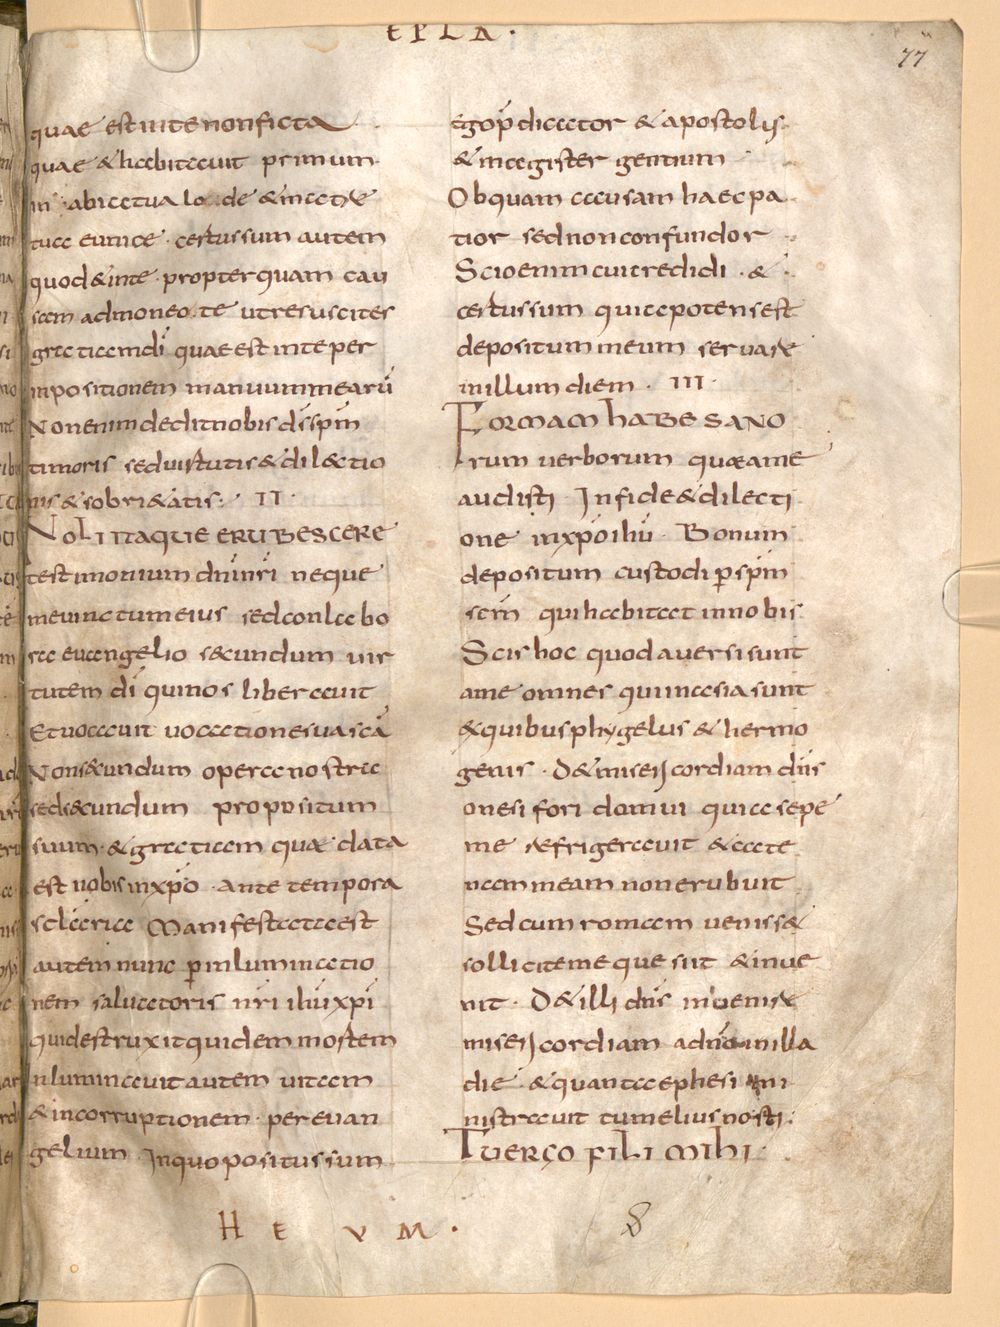 EPLA·
77
quae est inte non ficta
quae & habitauit primum
in abia tua lo de & matre
tua eunice · certus sum autem
quod & inte · propter quam cau
sam admoneo te ut resuscites
gratiam di quae est inte per
inpositionem manuum mearū
Non enim dedit nobis ds spm
timoris sed uirtutis & dilectio
nis & sobrietatis · II ·
Noli itaque erubescere
testimonium dni nri neque
me uinctum eius sed conlabo
ra euangelio secundum uir
tutem di qui nos liberauit
Et uocauit uocatione sua scā
Non secundum opera nostra
sed secundum propositum
suum · & gratiam quae data
est nobis in xpo · Ante tempora
saecularia Manifestata est
autem nunc p inluminatio
nem saluatoris nri ihu xpi
qui destruxit quidem mortem
inluminauit autem uitam
& incorruptionem · per euan
gelium Inquo positus sum
ego p̄dicator & apostolis
& magister gentium
Ob quam causam haec pa
tior sed non confundor
Scio enim cui credidi · &
certus sum quia potens est
depositum meum seruare
in illum diem · III ·
Formam habe sano
rum uerborum quae ame
audisti In fide & dilecti
one in xpo ihu Bonum
depositum custodi p spm
scm qui habitat in nobis
Scis hoc quod auersi sunt
ame omnes qui in asia sunt
& quibus phygelus & hermo
genis · D& misericordiam dns
onesifori domui quia sepe
me refrigerauit & cate
nam meam non erubuit
Sed cum romam uenisset
sollicite me quesiit & inue
nit · D& illi dns inuenire
misericordiam a dno in illa
die & quanta ephesi mi
nistrauit tu melius nosti ·
Tu ergo fili mihi ·
H E V M ·
8